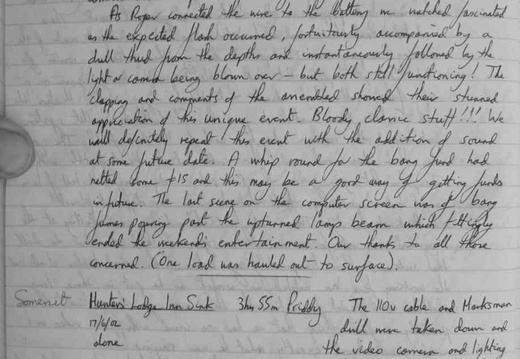 As Roper connected the wire to the battery we watched fascinated
as the expected flash occurred, fortuitously accompanied by a
dull thud from the depths and instantaneously followed by the
light & camera being blown over – but both still functioning! The
clapping and comments of the assembled showed their stunned
appreciation of this unique event. Bloody classic stuff!!! We
will definitely repeat this event with the addition of sound
at some future date. A whip round for the bang fund had
netted some £15 and this may be a good way of getting funds
in future. The last scene on the computer screen was of bang
fumes pouring past the upturned lamps beam which fittingly
ended the weekend's entertainment. Our thanks to all those
concerned. (One load was hauled out to surface).
Somerset Hunters' Lodge Inn Sink 3hr 55m Priddy The 110v cable and Marksman
17/6/02 drill were taken down and
alone the video camera and lighting